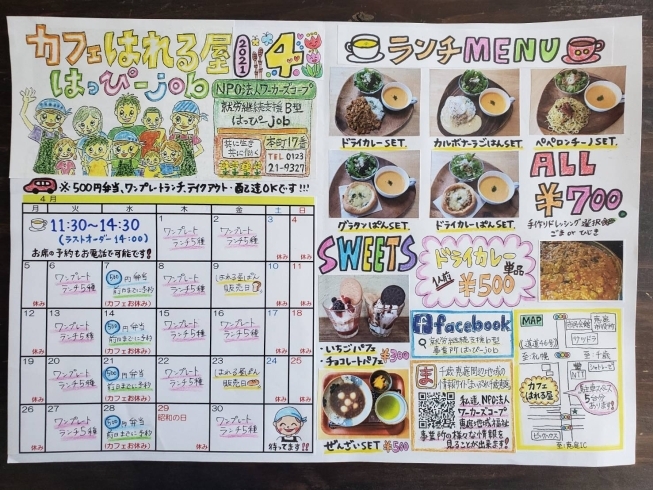 カフェはれる屋
はっぴーjob
2021
4
NPO法人ワーカーズコープ
就労継続支援B型
はっぴーjob
共に生き
共に働く
本町17番
TEL 0123
21-9327
※500円弁当、ワンプレートランチ、テイクアウト・配達OKです!!!
4月
月 火 水 木 金 土 日
11:30~14:30
(ラストオーダー 14:00)
お席の予約もお電話で可能です!!
1 ワンプレートランチ5種
2 ワンプレートランチ5種
3 休み
4 休み
5 休み
6 ワンプレートランチ5種
7 500円弁当 前日までに予約 (カフェお休み)
8 ワンプレートランチ5種
9 はれる屋ぱん販売日
10 休み
11 休み
12 休み
13 ワンプレートランチ5種
14 500円弁当 前日までに予約 (カフェお休み)
15 ワンプレートランチ5種
16 ワンプレートランチ5種
17 休み
18 休み
19 休み
20 ワンプレートランチ5種
21 500円弁当 前日までに予約 (カフェお休み)
22 ワンプレートランチ5種
23 はれる屋ぱん販売日
24 休み
25 休み
26 休み
27 ワンプレートランチ5種
28 500円弁当 前日までに予約 (カフェお休み)
29 昭和の日 休み
30 ワンプレートランチ5種
待ってます!!
ランチMENU
ドライカレーSET.
カルボナーラごはんSET.
ペペロンチーノSET.
グラタンぱんSET.
ドライカレーぱんSET.
ALL
¥700.
手作りドレッシング選択
ごま or ひじき
SWEETS
・いちごパフェ
・チョコレートパフェ ¥300
ぜんざいSET ¥500
ドライカレー
単品
¥500
facebook
就労継続支援b型
事業所はっぴーjob
ま
千歳・恵庭周辺地域の
情報サイトまいぷれ千歳・恵庭
私達、NPO法人
ワーカーズコープ
恵庭地域福祉
事業所の様々な情報を
見ることが出来ます!!
MAP
恵庭市役所
市民会館
サツドラ
(道道46号)
至:札幌
至:千歳
シャトレーゼ
NTT
カフェはれる屋
駐車スペース
5台分
あります!!
ビックハウス
至:恵庭IC